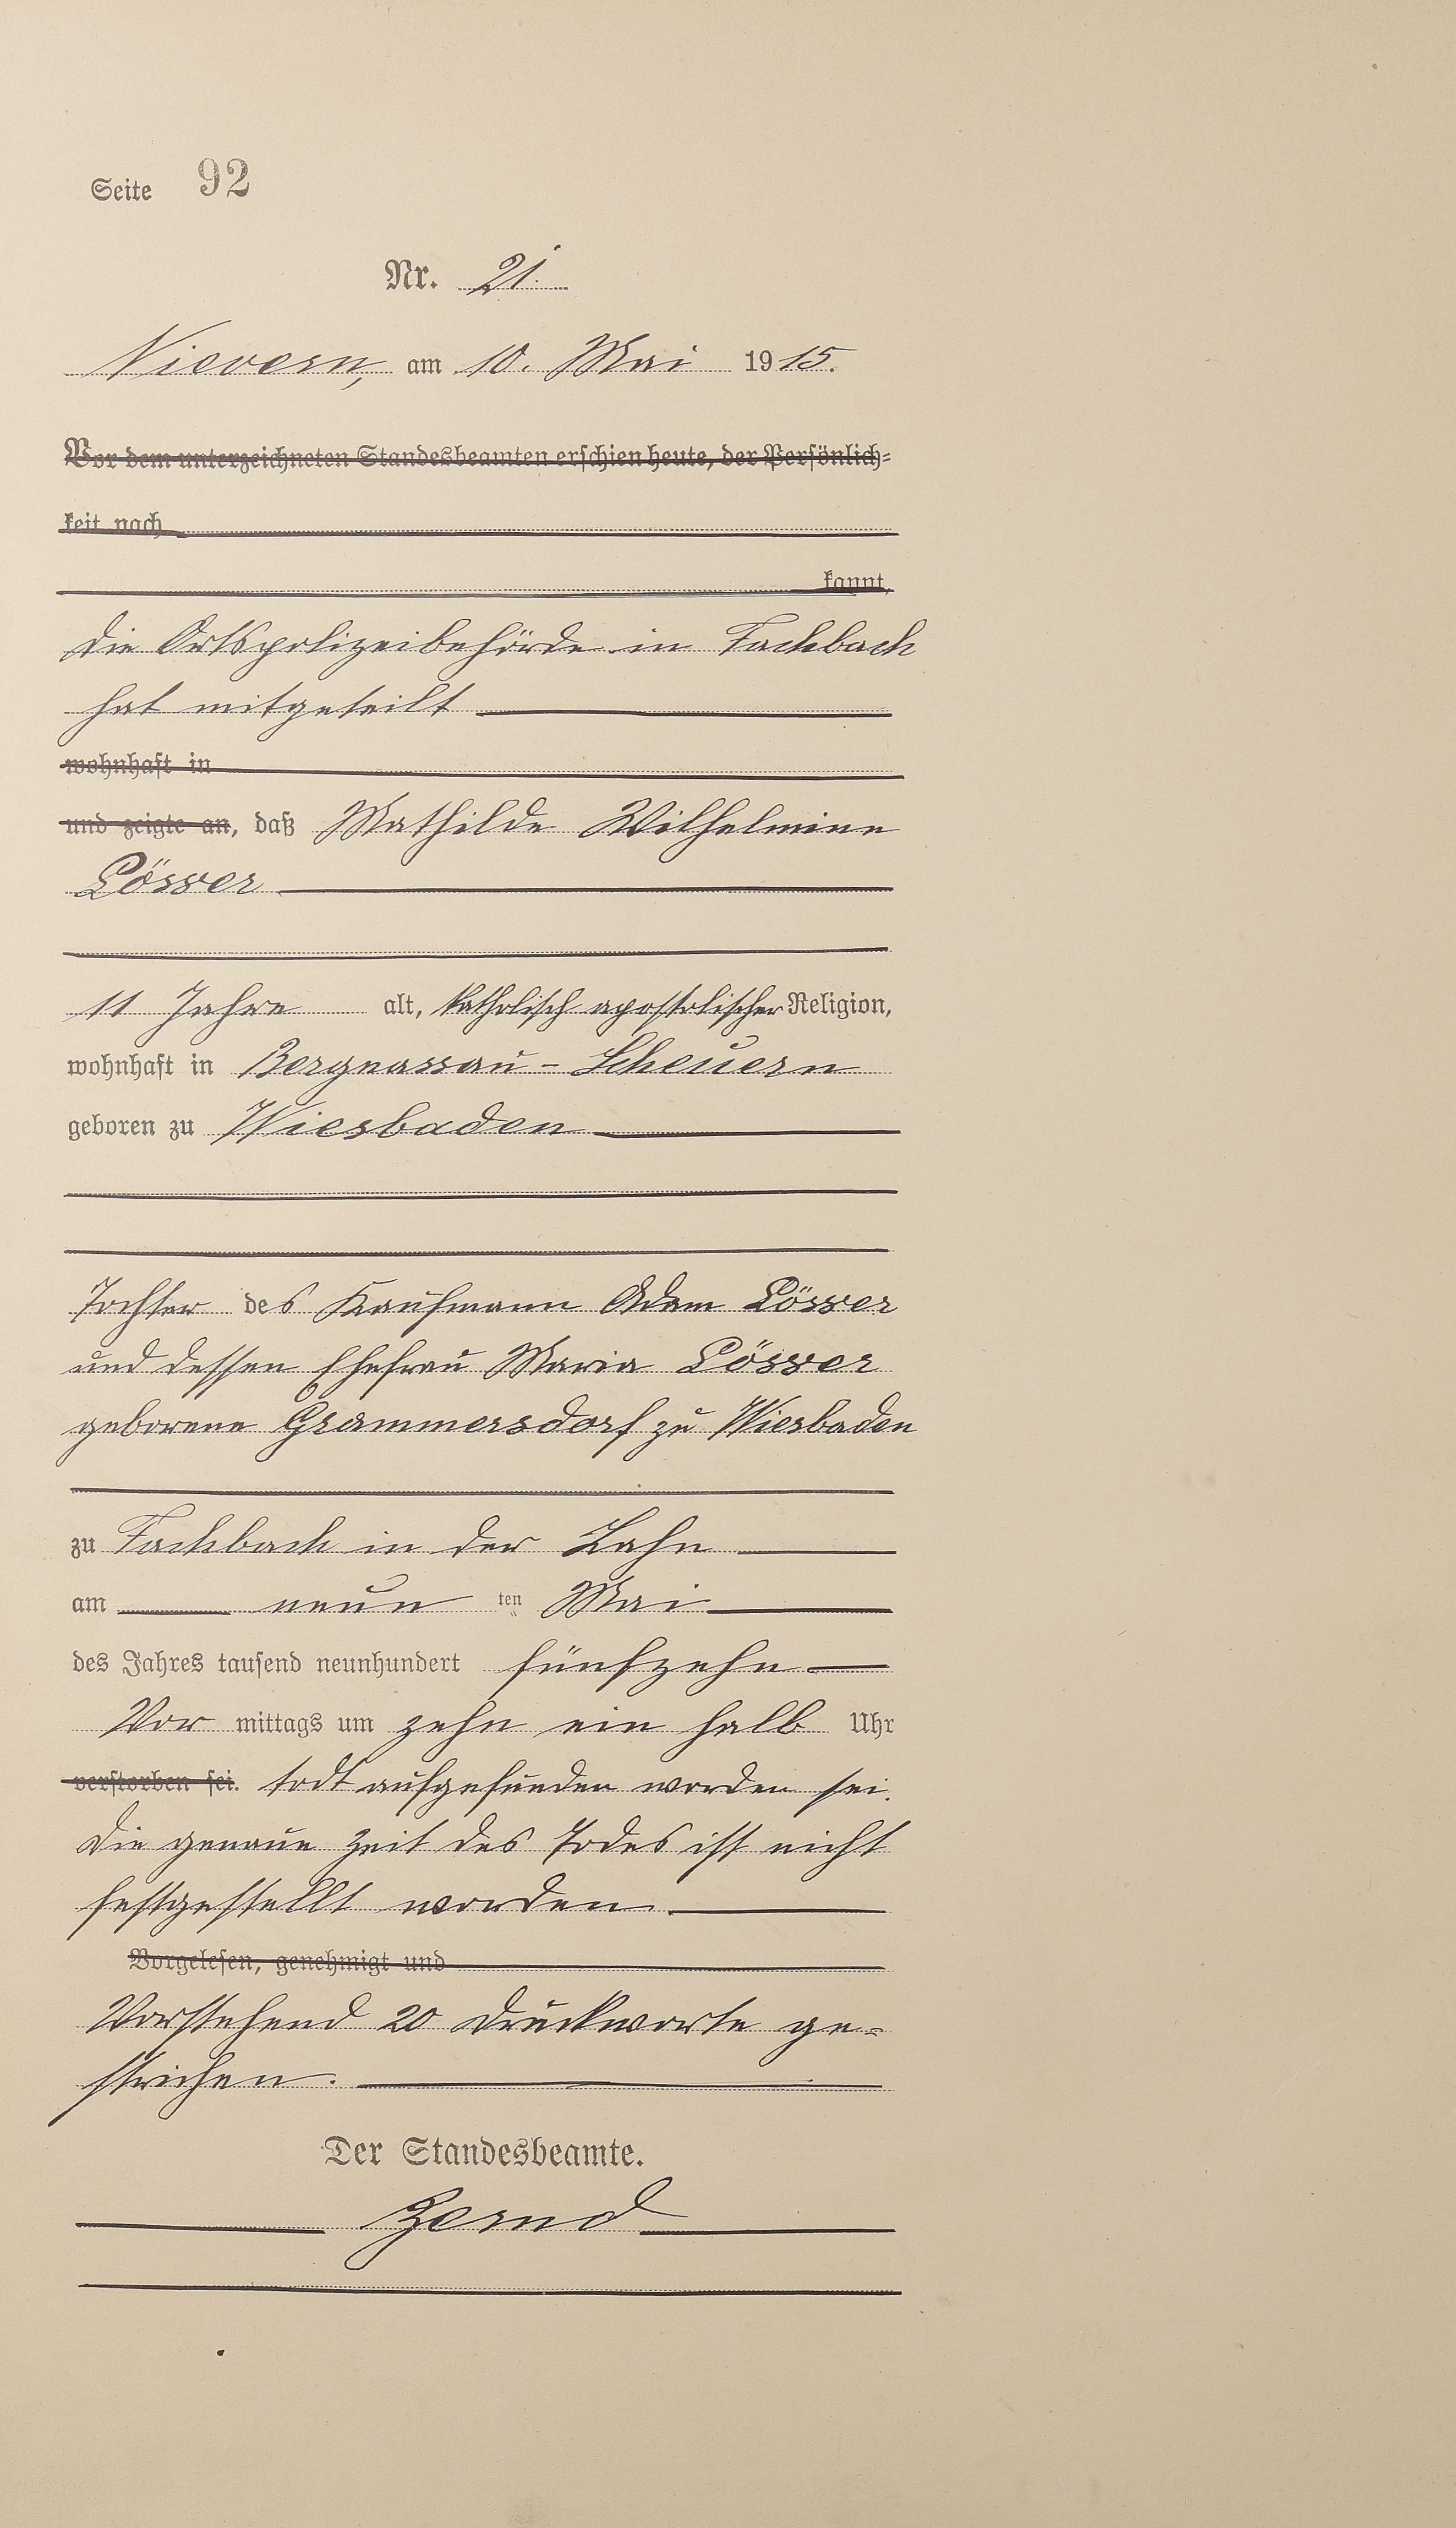 Seite 92
Nr. 21.
Nievern, am 10. Mai 1915.
Vor dem unterzeichneten Standesbeamten erschien heute, der Persönlich-
keit nach
kannt,
die Ortspolizeibehörde in Fachbach
hat mitgeteilt
wohnhaft in
und zeigte an, daß Mathilde Wilhelmine
Lösser
11 Jahre alt, katholisch apostolischer Religion,
wohnhaft in Bergnassau-Scheuern
geboren zu Wiesbaden
Tochter des Kaufmann Adam Lösser
und dessen Ehefrau Maria Lösser
geborene Grammersdorf zu Wiesbaden
zu Fachbach in der Lahn
am neun ten Mai
des Jahres tausend neunhundert fünfzehn
Vor mittags um zehn ein halb Uhr
verstorben sei. todt aufgefunden worden sei.
Die genaue Zeit des Todes ist nicht
festgestellt worden.
Vorgelesen, genehmigt und
Vorstehend 20 Druckworte ge-
strichen.
Der Standesbeamte.
Zernd